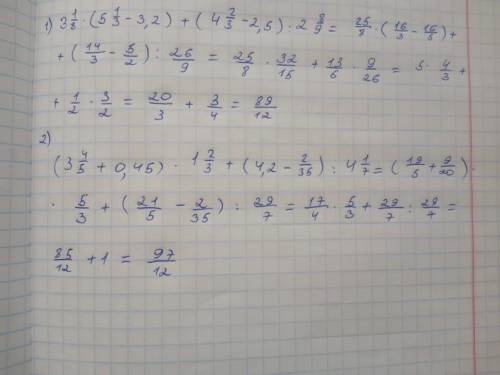 1) 3 1/8 · (5 1/3 - 3,2) + (4 2/3 - 2,5) : 2 8/9 = 25/8 · (16/3 - 16/5) +
+ (14/3 - 5/2) : 26/9 = 25/8 · 32/15 + 13/6 · 9/26 = 5 · 4/3 +
+ 1/2 · 3/2 = 20/3 + 3/4 = 89/12
2)
(3 4/5 + 0,45) · 1 2/3 + (4,2 - 2/35) : 4 1/7 = (19/5 + 9/20) ·
· 5/3 + (21/5 - 2/35) : 29/7 = 17/4 · 5/3 + 29/7 : 29/7 =
85/12 + 1 = 97/12